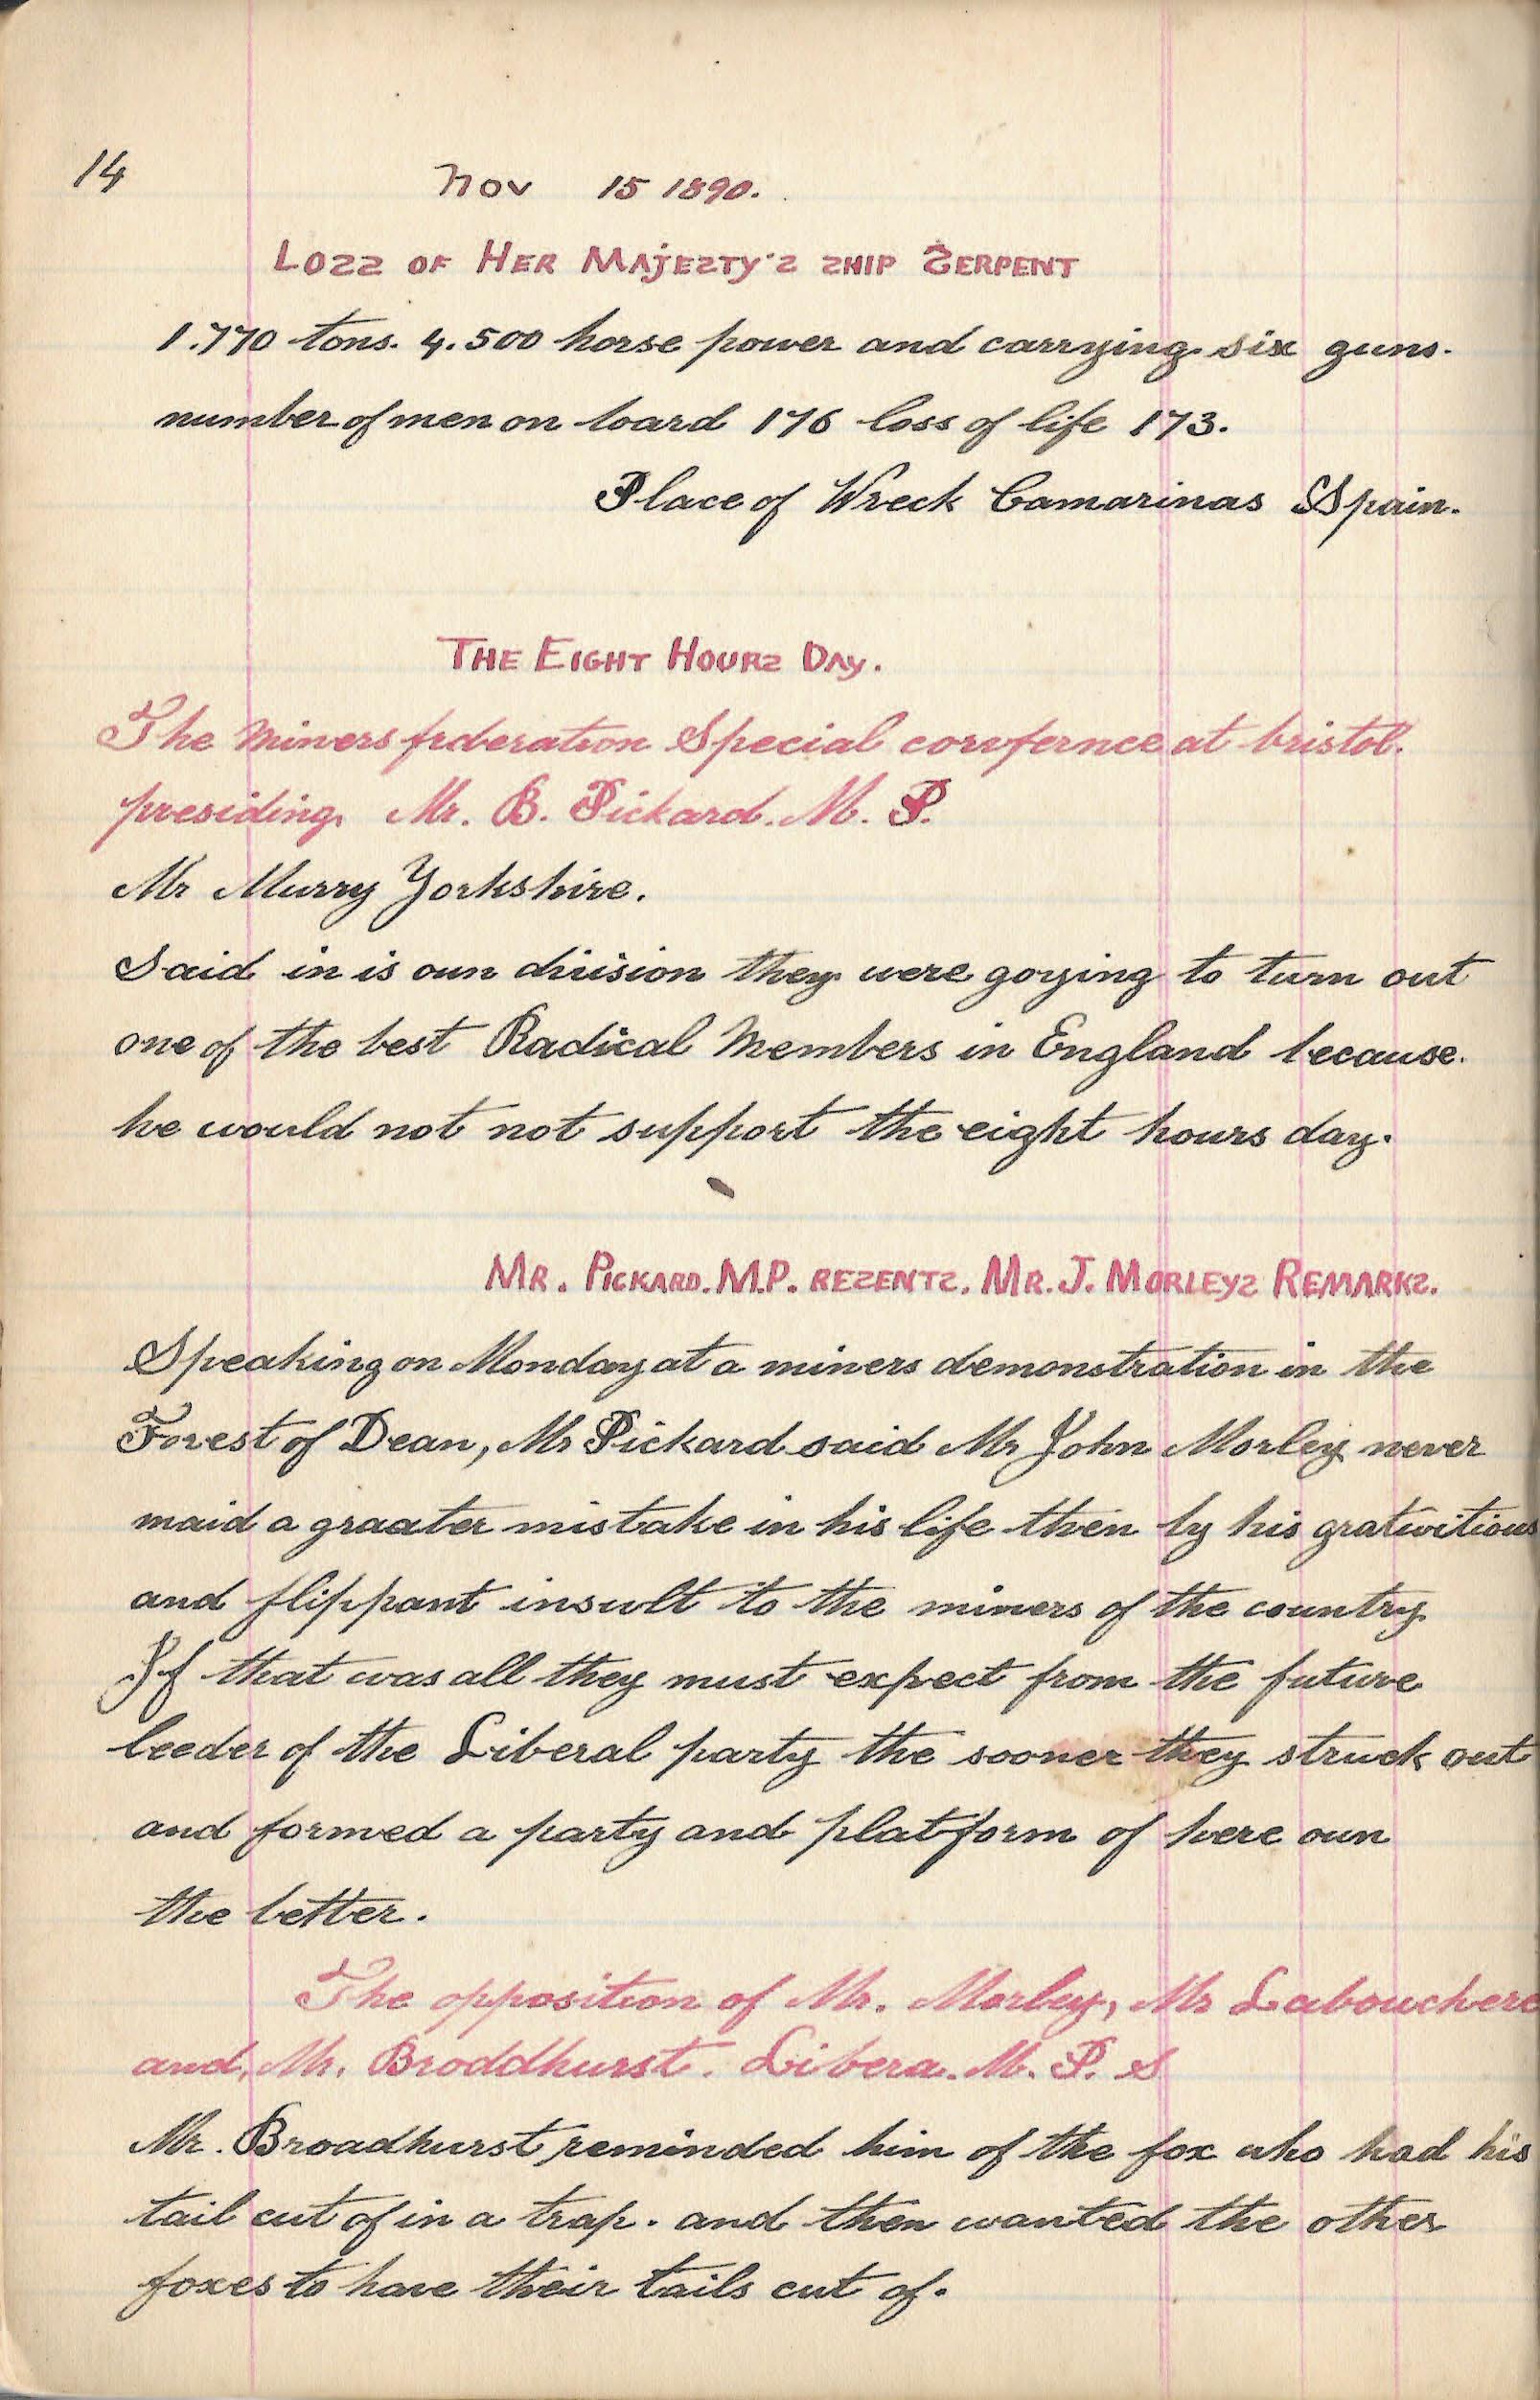 14
Nov 15 1890.
Loss of Her Majesty's ship Serpent
1.770 tons. 4.500 horse power and carrying six guns.
number of men on board 176 loss of life 173.
Place of Wreck Camarinas Spain.
The Eight Hours Day.
The Miners federation Special confernce at bristol.
presiding. Mr. B. Pickard. M. P.
Mr Murry Yorkshire.
Said in is oun division they were goying to turn out
one of the best Radical Members in England because.
he would not not support the eight hours day.
Mr. Pickard. M.P. resents. Mr. J. Morleys Remarks.
Speaking on Monday at a miners demonstration in the
Forest of Dean, Mr Pickard said Mr John Morley never
maid a graater mistake in his life then by his grativitious
and flippant insult to the miners of the country
If that was all they must expect from the future
leeder of the Liberal party the sooner they struck out
and formed a party and platform of here oun
the better.
The opposition of Mr. Morley, Mr Labouchere
and, Mr. Broddhurst. Libera. M. P. s
Mr. Broadhurst reminded him of the fox who had his
tail cut of in a trap. and then wanted the other
foxes to have their tails cut of.